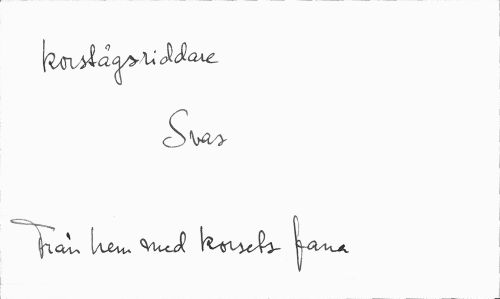 korstågsriddare
Svar
Från hem med korsets fana